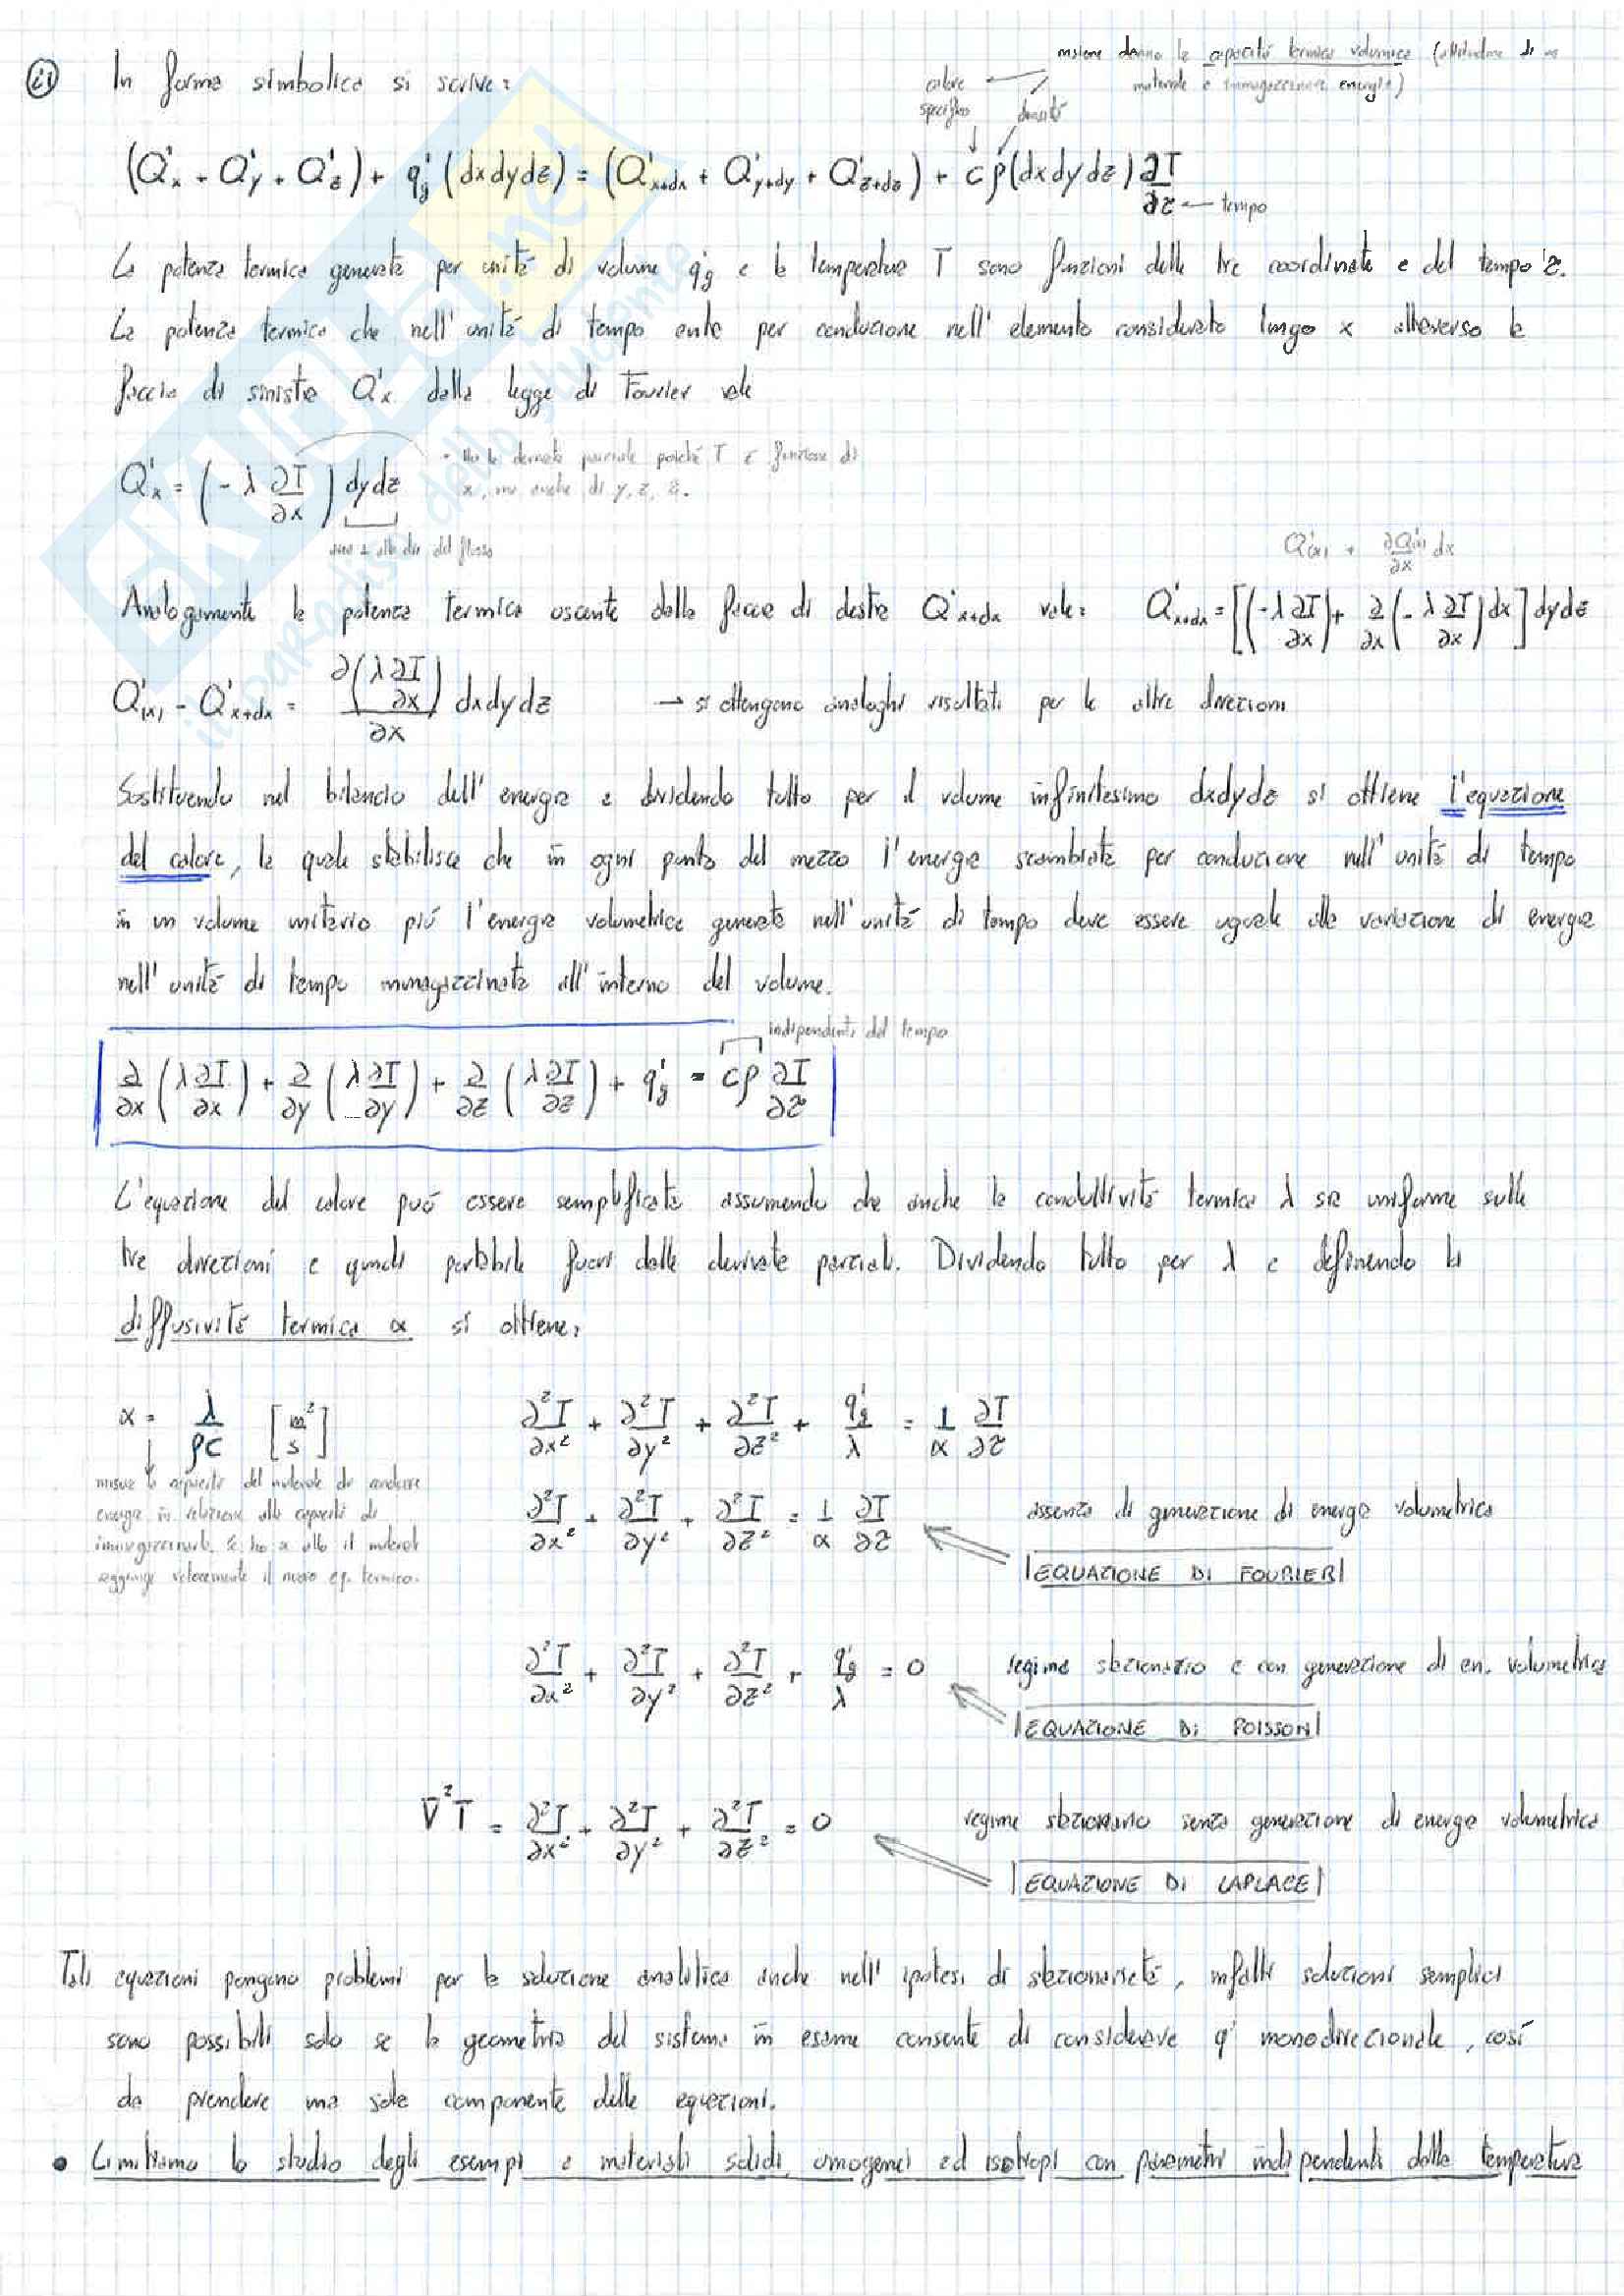 ii) In forma simbolica si scrive:
insieme danno la capacità termica volumica (attitudine di un
materiale a immagazzinare energia)
calore
specifico
densità
(Q̇x + Q̇y + Q̇z) + q̇g (dxdydz) = (Q̇x+dx + Q̇y+dy + Q̇z+dz) + cρ(dxdydz) ∂T/∂τ ← tempo
La potenza termica generata per unità di volume q̇g e la temperatura T sono funzioni delle tre coordinate e del tempo τ.
La potenza termica che nell'unità di tempo entra per conduzione nell'elemento considerato lungo x attraverso la
faccia di sinistra Q̇x dalla legge di Fourier vale
Q̇x = (-λ ∂T/∂x) dydz
Ho la derivata parziale poiché T è funzione di
x, ma anche di y, z, τ.
area ⊥ alla dir. del flusso
Q̇(x) + ∂Q̇(x)/∂x dx
Analogamente la potenza termica uscente dalla faccia di destra Q̇x+dx vale: Q̇x+dx = [(-λ ∂T/∂x) + ∂/∂x (-λ ∂T/∂x) dx] dydz
Q̇(x) - Q̇x+dx = ∂(λ ∂T/∂x)/∂x dxdydz → si ottengono analoghi risultati per le altre direzioni
Sostituendo nel bilancio dell'energia e dividendo tutto per il volume infinitesimo dxdydz si ottiene l'equazione
del calore, la quale stabilisce che in ogni punto del mezzo l'energia scambiata per conduzione nell'unità di tempo
in un volume unitario più l'energia volumetrica generata nell'unità di tempo deve essere uguale alla variazione di energia
nell'unità di tempo immagazzinata all'interno del volume.
indipendenti dal tempo
∂/∂x (λ ∂T/∂x) + ∂/∂y (λ ∂T/∂y) + ∂/∂z (λ ∂T/∂z) + q̇g = cρ ∂T/∂τ
L'equazione del calore può essere semplificata assumendo che anche la conduttività termica λ sia uniforme sulle
tre direzioni e quindi portabile fuori dalle derivate parziali. Dividendo tutto per λ e definendo la
diffusività termica α si ottiene:
α = λ/ρc [m²/s]
∂²T/∂x² + ∂²T/∂y² + ∂²T/∂z² + q̇g/λ = 1/α ∂T/∂τ
misura la capacità del materiale di condurre
energia in relazione alla capacità di
immagazzinarla. Se ho α alto il materiale
raggiunge velocemente il nuovo eq. termico.
∂²T/∂x² + ∂²T/∂y² + ∂²T/∂z² = 1/α ∂T/∂τ
assenza di generazione di energia volumetrica
EQUAZIONE DI FOURIER
∂²T/∂x² + ∂²T/∂y² + ∂²T/∂z² + q̇g/λ = 0
regime stazionario e con generazione di en. volumetrica
EQUAZIONE DI POISSON
∇²T = ∂²T/∂x² + ∂²T/∂y² + ∂²T/∂z² = 0
regime stazionario senza generazione di energia volumetrica
EQUAZIONE DI LAPLACE
Tali equazioni pongono problemi per la soluzione analitica anche nell'ipotesi di stazionarietà, infatti soluzioni semplici
sono possibili solo se la geometria del sistema in esame consente di considerare q̇ monodirezionale, così
da prendere una sola componente delle equazioni.
• Limitiamo lo studio degli esempi a materiali solidi, omogenei ed isotropi con parametri indipendenti dalla temperatura
SKUOLA.net
il paradiso dello studente